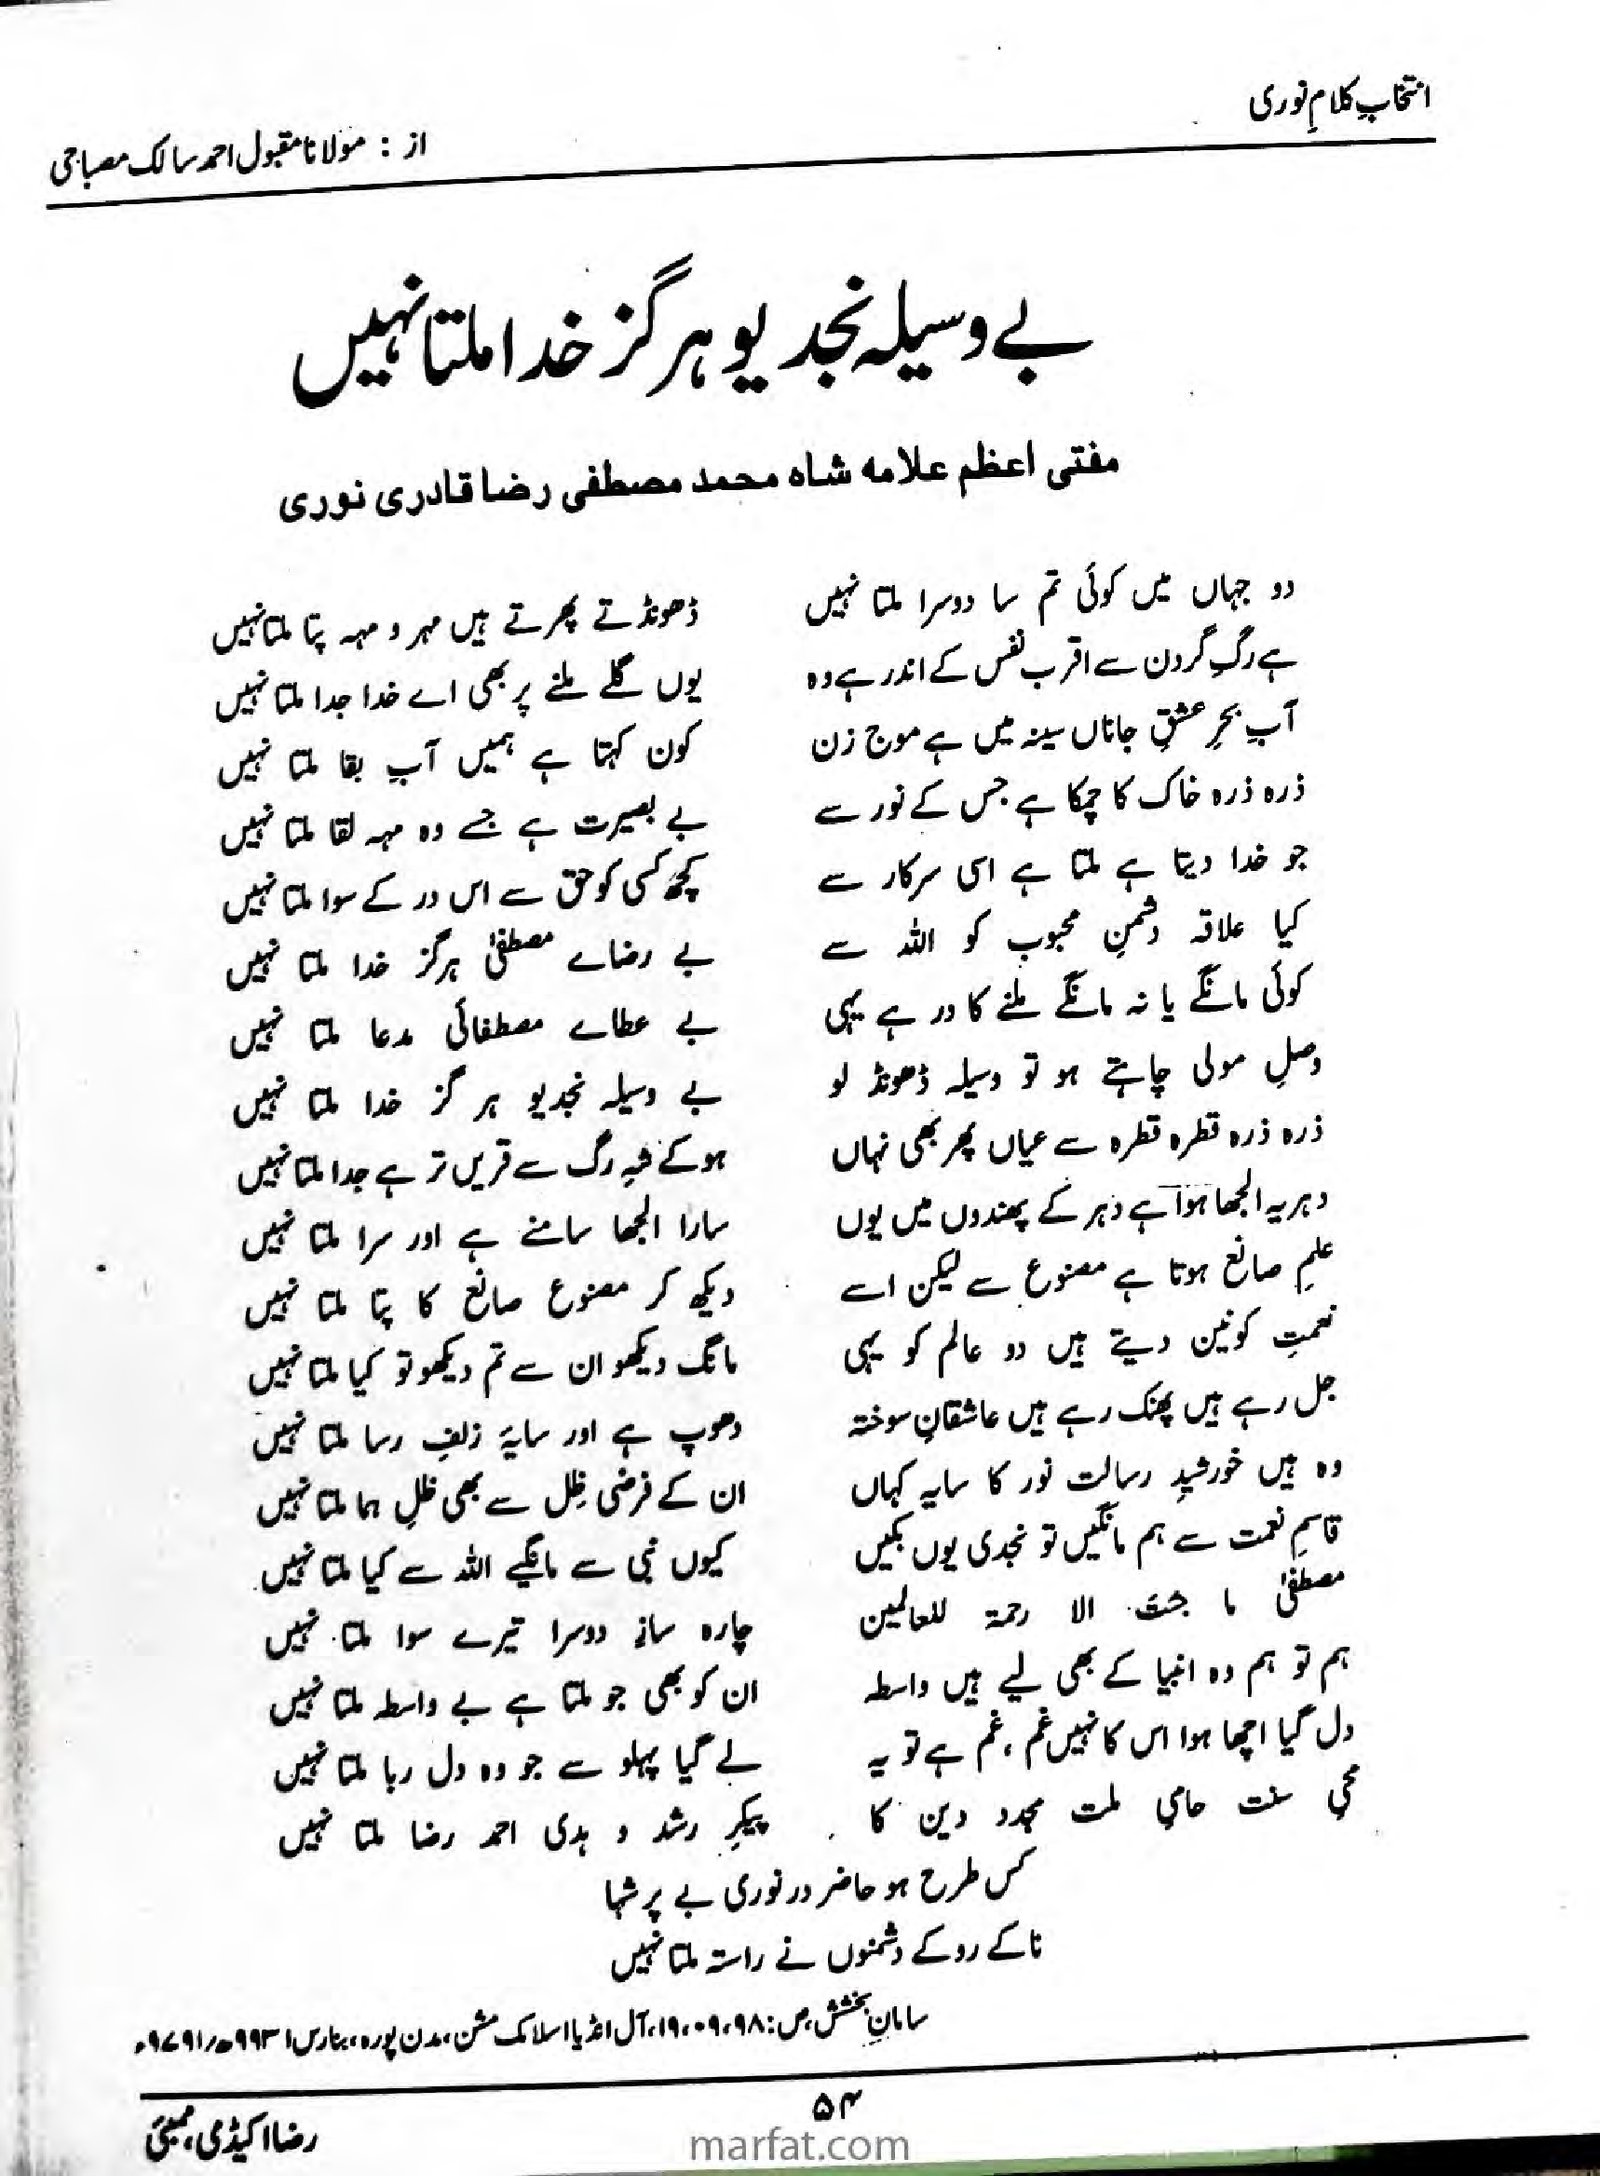 انتخابِ کلامِ نوری
از : مولانا مقبول احمد سالک مصباحی
بے وسیلہ نجدیو ہرگز خدا ملتا نہیں
مفتی اعظم علامہ شاہ محمد مصطفی رضا قادری نوری
دو جہاں میں کوئی تم سا دوسرا ملتا نہیں ڈھونڈتے پھرتے ہیں مہر و مہہ پتا ملتا نہیں
ہے رگِ گردن سے اقرب نفس کے اندر ہے وہ یوں گلے ملنے پر بھی اے خدا جدا ملتا نہیں
آبِ بحرِ عشقِ جاناں سینہ میں ہے موج زن کون کہتا ہے ہمیں آبِ بقا ملتا نہیں
ذرہ ذرہ خاک کا چمکا ہے جس کے نور سے بے بصیرت ہے جسے وہ مہہ لقا ملتا نہیں
جو خدا دیتا ہے ملتا ہے اسی سرکار سے کچھ کسی کو حق سے اس در کے سوا ملتا نہیں
کیا علاقہ دشمنِ محبوب کو اللہ سے بے رضاے مصطفیٰ ہرگز خدا ملتا نہیں
کوئی مانگے یا نہ مانگے ملنے کا در ہے یہی بے عطاے مصطفائی مدعا ملتا نہیں
وصلِ مولی چاہتے ہو تو وسیلہ ڈھونڈ لو بے وسیلہ نجدیو ہرگز خدا ملتا نہیں
ذرہ ذرہ قطرہ قطرہ سے عیاں پھر بھی نہاں ہوکے شہِ رگ سے قریں تر ہے جدا ملتا نہیں
دہریہ الجھا ہوا ہے دہر کے پھندوں میں یوں سارا الجھا سامنے ہے اور سرا ملتا نہیں
علمِ صانع ہوتا ہے مصنوع سے لیکن اسے دیکھ کر مصنوع صانع کا پتا ملتا نہیں
نعمتِ کونین دیتے ہیں دو عالم کو یہی مانگ دیکھو ان سے تم دیکھو تو کیا ملتا نہیں
جل رہے ہیں پھنک رہے ہیں عاشقانِ سوختہ دھوپ ہے اور سایۂ زلفِ رسا ملتا نہیں
وہ ہیں خورشیدِ رسالت نور کا سایہ کہاں ان کے فرضی ظِل سے بھی ظلِ ہما ملتا نہیں
قاسمِ نعمت سے ہم مانگیں تو نجدی یوں بکیں کیوں نبی سے مانگیے اللہ سے کیا ملتا نہیں
مصطفیٰ ما جئت الا رحمۃ للعالمین چارہ ساز دوسرا تیرے سوا ملتا نہیں
ہم تو ہم وہ انبیا کے بھی لیے ہیں واسطہ ان کو بھی جو ملتا ہے بے واسطہ ملتا نہیں
دل گیا اچھا ہوا اس کا نہیں غم، غم ہے تو یہ لے گیا پہلو سے جو وہ دل ربا ملتا نہیں
محیِ سنت حامیِ ملت مجدد دین کا پیکرِ رشد و ہدی احمد رضا ملتا نہیں
کس طرح ہو حاضر در نوری بے پر شہا
ناکے روکے دشمنوں نے راستہ ملتا نہیں
سامانِ بخشش، ص: ۱۹،۰۹،۹۸، آل انڈیا اسلامک مشن، مدن پورہ، بنارس ۱۳۹۹ھ/۱۹۷۹ء
۵۴
رضا اکیڈمی، ممبئی
marfat.com